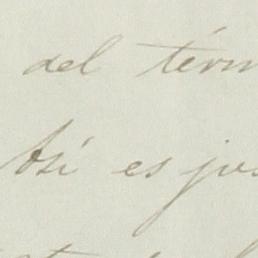 del térm
Así es jus